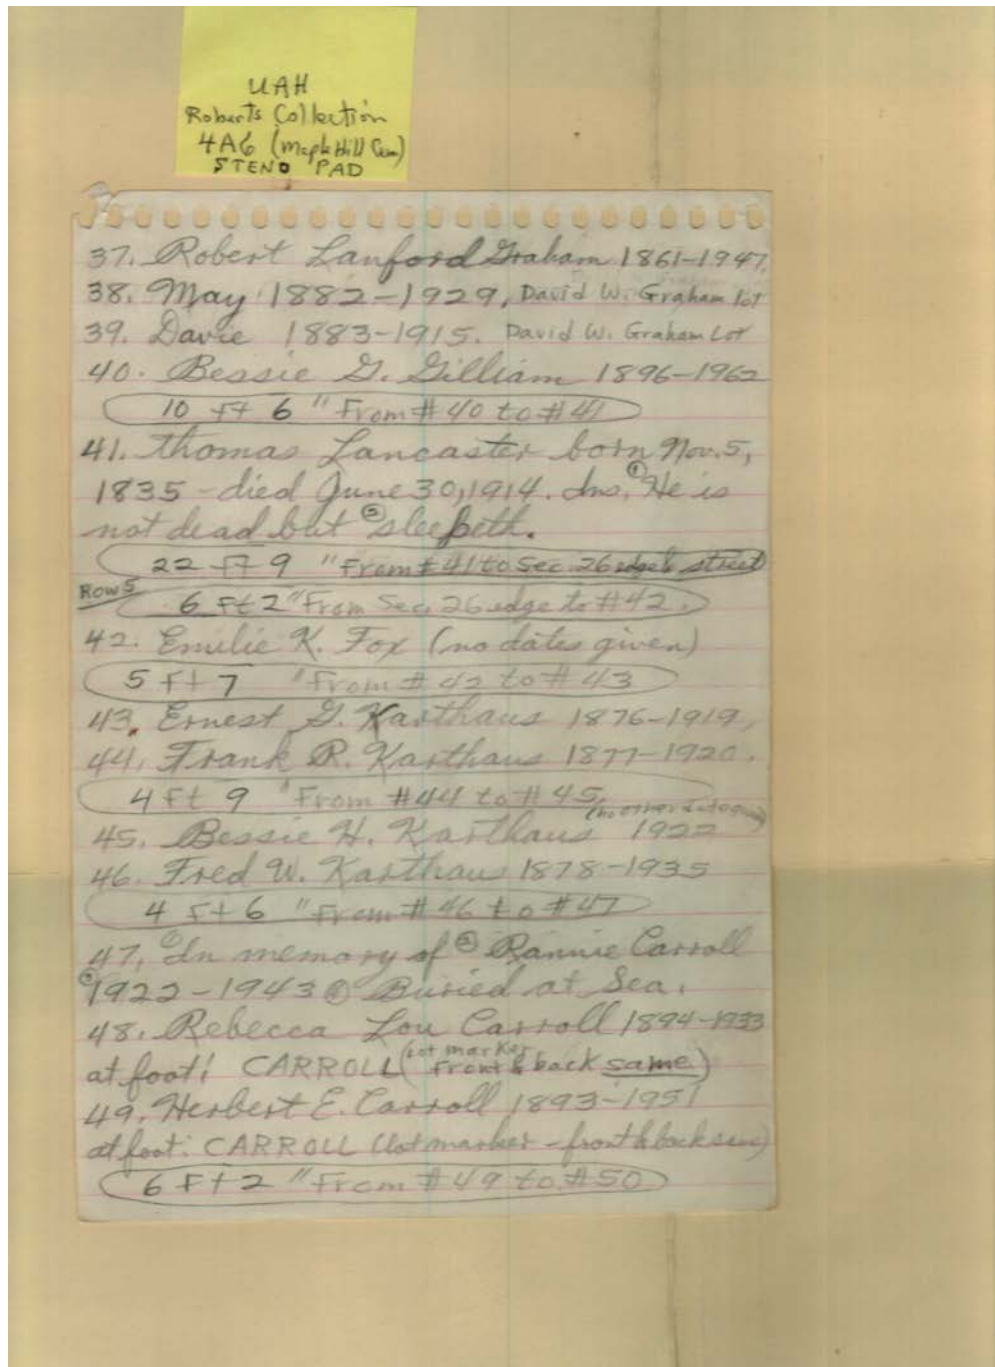 UAH
Roberts Collection
4A6 (Maple Hill Cem)
STENO PAD
37. Robert Lanford Graham 1861-1947.
38. May 1882-1929, David W. Graham lot
39. Davie 1883-1915. David W. Graham Lot
40. Bessie G. Gilliam 1896-1962
10 ft 6 " From # 40 to # 41
41. Thomas Lancaster born Nov. 5,
1835 - died June 30, 1914. Ins. ① He is
not dead but ② sleepeth.
22 ft 9 " From # 41 to Sec. 26 edge & street
Row 5
6 ft 2 " From Sec. 26 edge to # 42.
42. Emilie K. Fox (no dates given)
5 ft 7 " From # 42 to # 43
43. Ernest G. Karthaus 1876-1919,
44. Frank R. Karthaus 1877-1920.
4 ft 9 " From # 44 to # 45
(no other date given)
45. Bessie H. Karthaus 1922
46. Fred W. Karthaus 1878-1935
4 ft 6 " From # 46 to # 47
47. ① In memory of ② Rannie Carroll
③ 1922-1943 ④ Buried at Sea.
48. Rebecca Lou Carroll 1894-1933
at foot: CARROLL (Lot marker front & back same)
49. Herbert E. Carroll 1893-1951
at foot: CARROLL (lot marker - front & back same)
6 ft 2 " From # 49 to # 50